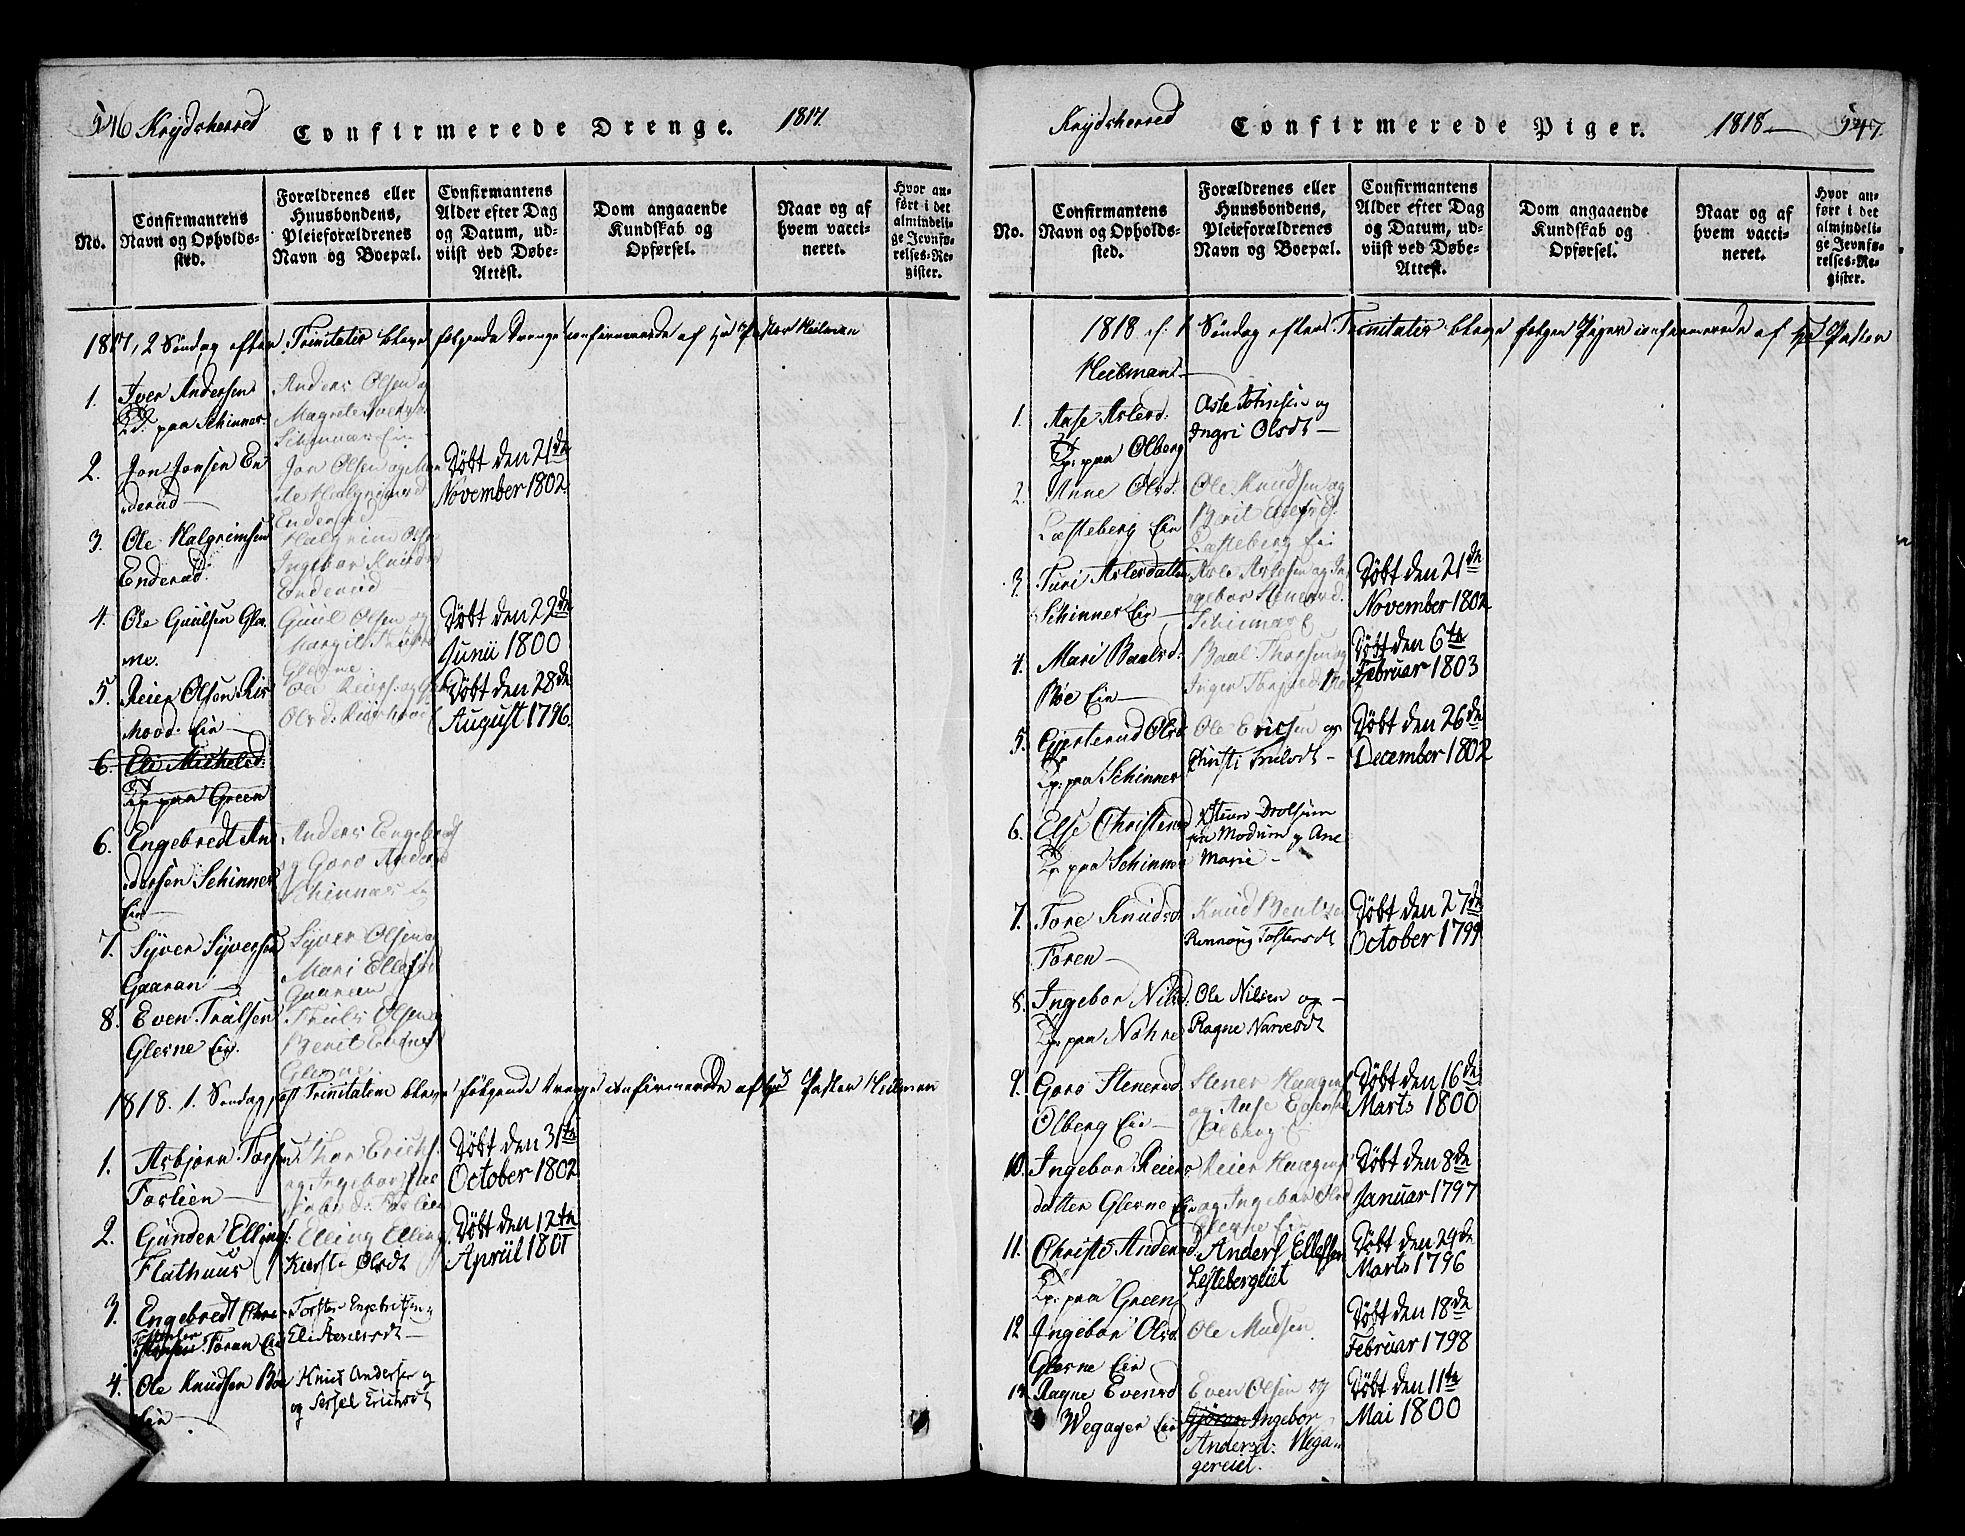 546 Krydsherred Confirmerede Drenge. 1817.
No.
Confirmantens
Navn og Opholds-
sted.
Forældrenes eller
Huusbondens,
Pleieforældrenes
Navn og Boepæl.
Confirmantens
Alder efter Dag
og Datum, ud-
viist ved Døbe-
Attest.
Dom angaaende
Kundskab og
Opførsel.
Naar og af
hvem vacci-
neret.
Hvor an-
ført i det
almindeli-
ge Jevnfø-
relses-Re-
gister.
1817, 2 Søndag efter Trinitatis bleve følgende Drenge confirmerede af Hr Pastor Heilman
1. Iver Andersen
paa Schinnes
Anders Olsen og
Schinnes Eie
2. Jon Jonsen En
derud
Jon Olsen og
Halgrimsd
Enderud
Døbt den 21de
November 1802
3. Ole Halgrimsen
Enderud.
Halgrim Olsen
Ingebor Knudsd
Enderud
4. Ole Guulsen Gles
ne.
Guul Olsen og
Margit
Glesne
Døbt den 22de
Junii 1800
5. Reier Olsen Ris
hovd. Eie
Ole Reiers. og
Olsd.
Døbt den 28de
August 1796
6. Eli Michelsd.
paa Green
6. Engebredt An
dersen Schinnes
Eie
Anders Engebreds
og Goro Andersd
Schinnes
7. Syver Syversen
Gaaran
Syver Olsen og
Mari Ellefsd
Gaaraen
8. Even Trulsen
Glesne Eie.
Truls Olsen og
Berit Evensd
Glesne
1818. 1. Søndag post Trinitatem bleve følgende Drenge confirmerede af Hr Pastor Heilman
1. Asbjørn Torsen
Toslien
Thor Erichs.
og Ingebor
Toslien
Døbt den 31te
October 1802
2. Gunder Ellings.
Flathuus
Elling Ellings.
Kirsti Olsdt
Døbt den 12te
Apriil 1801
3. Engebredt
Torstensen Toran Eie
Torsten Engebritsen
Eli Stenersdt
4. Ole Knudsen Bøe
Eie
Knud Andersen og
og Sessel Erichsdt
Krydsherred Confirmerede Piger. 1818 547.
No.
Confirmantens
Navn og Opholds-
sted.
Forældrenes eller
Huusbondens,
Pleieforældrenes
Navn og Boepæl.
Confirmantens
Alder efter Dag
og Datum, ud-
viist ved Døbe-
Attest.
Dom angaaende
Kundskab og
Opførsel.
Naar og af
hvem vacci-
neret.
Hvor an-
ført i det
almindeli-
ge Jevnfø-
relses-Re-
gister.
1818 d: 1 Søndag efter Trinitatis bleve følgen Piger confirmerede af Hr Pastor
Heilman
1. Aase Aslesd.
paa Olberg
Asle
Ingri Olsdt
2. Anne Olsd.
Læsteberg Eie
Ole Knudsen og
Berit
Læsteberg Eie
3. Turi Aslesdatter
Schinnes Eie
Asle Aslesen og In
gebor Stenersd.
Schinnes E
Døbt den 21de
November 1802
4. Mari Baalsd.
Bøe Eie
Baal Thorsen og
Inger
Døbt den 6te
Februar 1803
5. Gjerterud Olsd
paa Schinnes
Ole Ericsen og
Kirsti Trulsdt
Døbt den 26de
December 1802
6. Else Christensd
paa Schinnes
Drolsum
fra Modum og Ane
Marie
7. Tore Knudsd
Toren
Knud
Rennaug Tostensdt
Døbt den 27de
October 1799
8. Ingebor Nilsd.
paa Nøhre
Ole Nilsen og
Ragne Narvesdt
9. Goro Stenersd.
Olberg Eie
Stener Haagens
og Aase
Olberg E
Døbt den 16de
Marts 1800
10. Ingebor Reiers
datter Glesne Eie
Reier Haagens
og Ingebor Olsd
Glesne Eie
Døbt den 8de
Januar 1797
11. Christi Andersd.
paa Green
Anders Ellefsen
Lesteberg eiet
Døbt den 29de
Marts 1796
12 Ingebor Olsd.
Glesne Eie
Ole Madsen
Døbt den 18de
Februar 1798
13 Ragne Evensd
Wegager Eie
Even Olsen og
Gjøran Ingebor
Andersd: Wega-
gereiet.
Døbt den 11te
Mai 1800